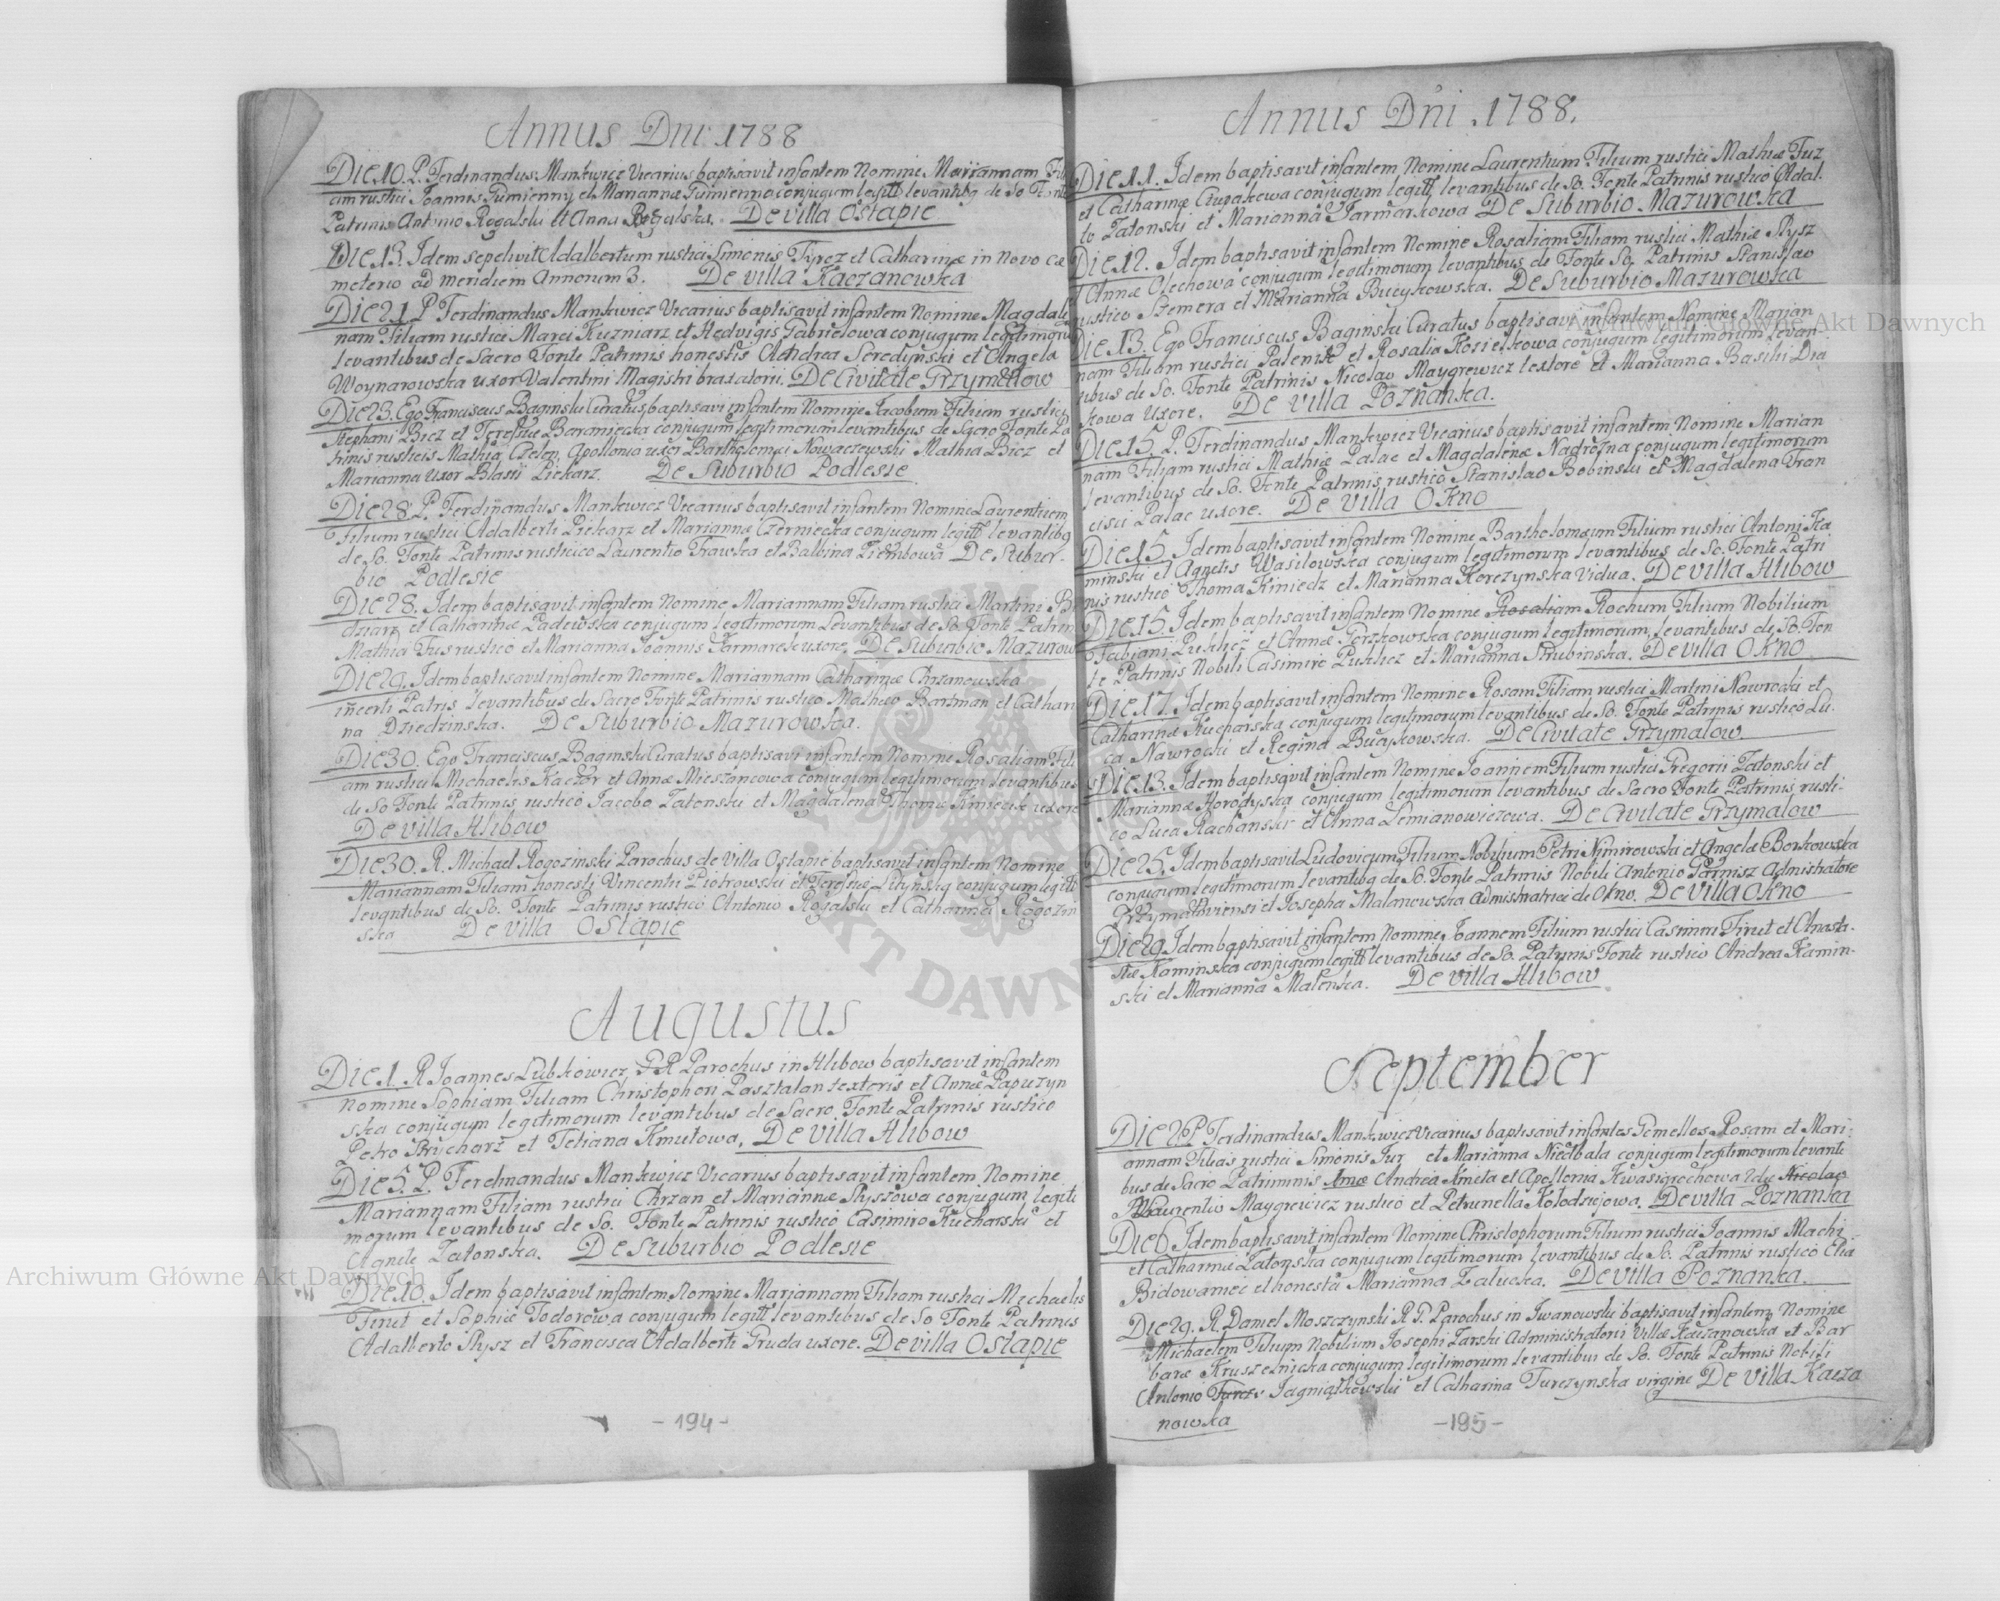 Annus Dni 1788
Die 10. P. Ferdinandus Mankwicz Vicarius baptisavit infantem Nomine Mariannam Fili
am rustici Joannis Gumienny et Mariannæ Gumienna conjugum legitt levantibq de So. Fonte
Patrinis Antonio Rogalski et Anna Rogalska. De villa Ostapie
Die 13. Idem sepelivit Adalbertum rustici Simonis Tyrcz et Catharinæ in novo cæ
meterio ad meridiem Annorum 3. De villa Kaczanowka
Die 21. P Ferdinandus Mankwicz Vicarius baptisavit infantem Nomine Magdale
nam Filiam rustici Marci Kuzniarz et Hedvigis Gabrielowa conjugum legitimorum
levantibus de Sacro Fonte Patrinis honestis Andrea Seredynski et Angela
Woynarowska uxor Valentini Magistri braxatorii. De Civitate Grzymalow
Die 23. Ego Franciscus Baginski Curatus baptisavi infantem Nomine Jacobum Filium rustici
Stephani Bicz et Teressiæ Baraniecka conjugum legitimorum levantibus de Sacro Fonte Pa
trinis rusticis Mathia Czelen, Apollonia uxor Bartholomei Nowaczewski Mathia Bicz et
Marianna uxor Blasii Piekarz. De Suburbio Podlesie
Die 28. P. Ferdinandus Mankwicz Vicarius baptisavit infantem Nomine Laurentium
Filium rustici Adalberti Piekarz et Mariannæ Czerniecka conjugum legitt levantibq
de So. Fonte Patrinis rustico Laurentio Trawka et Balbina Ziembowa De Subur-
bio Podlesie
Die 28. Idem baptisavit infantem Nomine Mariannam Filiam rustici Martini
et Catharinæ Padewska conjugum legitimorum Levantibus de So. Fonte Patrin
Mathia Fus rustico et Marianna Joannis Farmarek uxore. De Suburbio Mazurow
Die 29. Idem baptisavit infantem Nomine Mariannam Catharinæ Chrzanowska
incerti Patris levantibus de Sacro Fonte Patrinis rustico Matheo Bartman et Cathari
na Dziedzinska. De Suburbio Mazurowka.
Die 30. Ego Franciscus Baginski Curatus baptisavi infantem Nomine Rosaliam Fili
am rustici Michaelis Kaczor et Annæ Mieszancowa conjugum legitimorum levantibus
de So. Fonte Patrinis rustico Jacobo Zatonski et Magdalena Thomæ uxore
De villa Hlibow
Die 30. R. Michael Rogozinski Parochus de Villa Ostapie baptisavit infantem Nomine
Mariannam Filiam honesti Vincentii Piotrowski et Teressiæ Litynska conjugum legitt
levantibus de So. Fonte Patrinis rustico Antonio Rogalski et Catharina Rogozin
ska De villa Ostapie
Augustus
Die 1. R Joannes Lubkowicz G R Parochus in Hlibow baptisavit infantem
Nomine Sophiam Filiam Christophori Pasztalan textoris et Annæ Papuzyn
ska conjugum legitimorum levantibus de Sacro Fonte Patrinis rustico
Petro Stricharz et Tetiana Kmutowa. De villa Hlibow
Die 5. P. Ferdinandus Mankwicz Vicarius baptisavit infantem Nomine
Mariannam Filiam rustici Chrzan et Mariannæ Ryszowa conjugum legiti
morum levantibus de So. Fonte Patrinis rustico Casimiro Kucharski et
Agnete Zatonska. De Suburbio Podlesie
Die 10. Idem baptisavit infantem Nomine Mariannam Filiam rustici Michaelis
Firut et Sophiæ Todorowa conjugum legitt levantibus de So Fonte Patrinis
Adalberto Rysz et Francisca Adalberti Gruda uxore. De villa Ostapie
- 194 -
Annus Dni 1788.
Die 11. Idem baptisavit infantem Nomine Laurentium Filium rustici Mathiæ Fuz
et Catharinæ conjugum legitt levantibus de So. Fonte Patrinis rustico Adal.
to Zatonski et Marianna Farmarkowa De Suburbio Mazurowka
Die 12. Idem baptisavit infantem Nomine Rosaliam Filiam rustici Mathiæ Rysz
et Annæ Olechowa conjugum legitimorum levantibus de Fonte So. Patrinis Stanislao
rustico Szemera et Marianna Bucykowska. De Suburbio Mazurowka
Die 13. Ego Franciscus Baginski Curatus baptisavi infantem Nomine Marian
nam Filiam rustici Palenik et Rosalia Kosielkowa conjugum legitimorum levan
tibus de So. Fonte Patrinis Nicolao Maygrewicz textore et Marianna Basilii Dia
kowa uxore. De villa Poznanka.
Die 15. P. Ferdinandus Mankwicz Vicarius baptisavit infantem Nomine Marian
nam Filiam rustici Mathiæ Palac et Magdalenæ Nadrożna conjugum legitimorum
levantibus de So. Fonte Patrinis rustico Stanislao Bobinski et Magdalena Fran
cisci Palac uxore. De villa Okno
Die 15 Idem baptisavit infantem Nomine Bartholomæum Filium rustici Antoni Ka
minski et Agnetis Wasilowska conjugum legitimorum levantibus de So. Fonte Patri
nis rustico Thoma Kiniedz et Marianna Korczynska Vidua. De villa Hlibow
Die 15. Idem baptisavit infantem Nomine Rosaliam Rochum Filium Nobilium
Fabiani Pukhcz et Annæ Gorzkowska conjugum legitimorum, levantibus de So. Fon
te Patrinis Nobili Casimiro Pukhcz et Marianna Strubinska. De villa Okno
Die 17. Idem baptisavit infantem Nomine Rosam Filiam rustici Martini Nawrocki et
Catharinæ Kucharska conjugum legitimorum levantibus de So. Fonte Patrinis rustico Lu.
ca Nawrocki et Regina Buczkowska. De Civitate Grzymalow
Die 13. Idem baptisavit infantem Nomine Joannem Filium rustici Gregorii Zatonski et
Mariannæ Horodyska conjugum legitimorum levantibus de Sacro Fonte Patrinis rusti-
co Luca Rachanski et Anna Demianowiczowa. De Civitate Grzymalow
Die 25. Idem baptisavit Ludovicum Filium Nobilium Petri Nimirowski et Angelæ Borkowska
conjugum legitimorum levantibq de So. Fonte Patrinis Nobili Antonio Parnisz Administratore
Grzymaloviensi et Josepha Malanowska administratrici de Okno. De villa Okno
Die 29. Idem baptisavit infantem Nomine Joannem Filium rustici Casimiri Firut et Anasta.
siæ Kaminska conjugum legitt levantibus de So. Patrinis Fonte rustico Andrea Kamin-
ski et Marianna Malenka. De villa Hlibow
September
Die 2. P Ferdinandus Mankwicz Vicarius baptisavit infantes Gemellos Rosam et Mari-
annam Filias rustici Simonis Fur et Marianna Niedbala conjugum legitimorum levanti
bus de Sacro Patriminis Andrea Kmeta et Apollonia Kwasigrochowa 2do Nicolao
Laurentio Maygrewicz rustico et Petrunella Kolodziejowa. De villa Poznanka
Die 6. Idem baptisavit infantem Nomine Christophorum Filium rustici Joannis Machi
et Catharinæ Zatonska conjugum legitimorum levantibus de So. Patrinis rustico Elia
Bidowaniec et honesta Marianna Zalucka. De villa Poznanka.
Die 29. R. Daniel Moszczynski R. G. Parochus in Iwanowski baptisavit infantem Nomine
Michaelem Filium Nobilium Josephi Jarski Administratori Villæ Kaczanowka et Bar
baræ Kruszelnicka conjugum legitimorum levantibus de So. Fonte Patrinis Nobili
Antonio Jagniątkowski et Catharina Turczynska virgine De villa Kacza
nowka
- 195 -
Archiwum Główne Akt Dawnych
Archiwum Główne Akt Dawnych